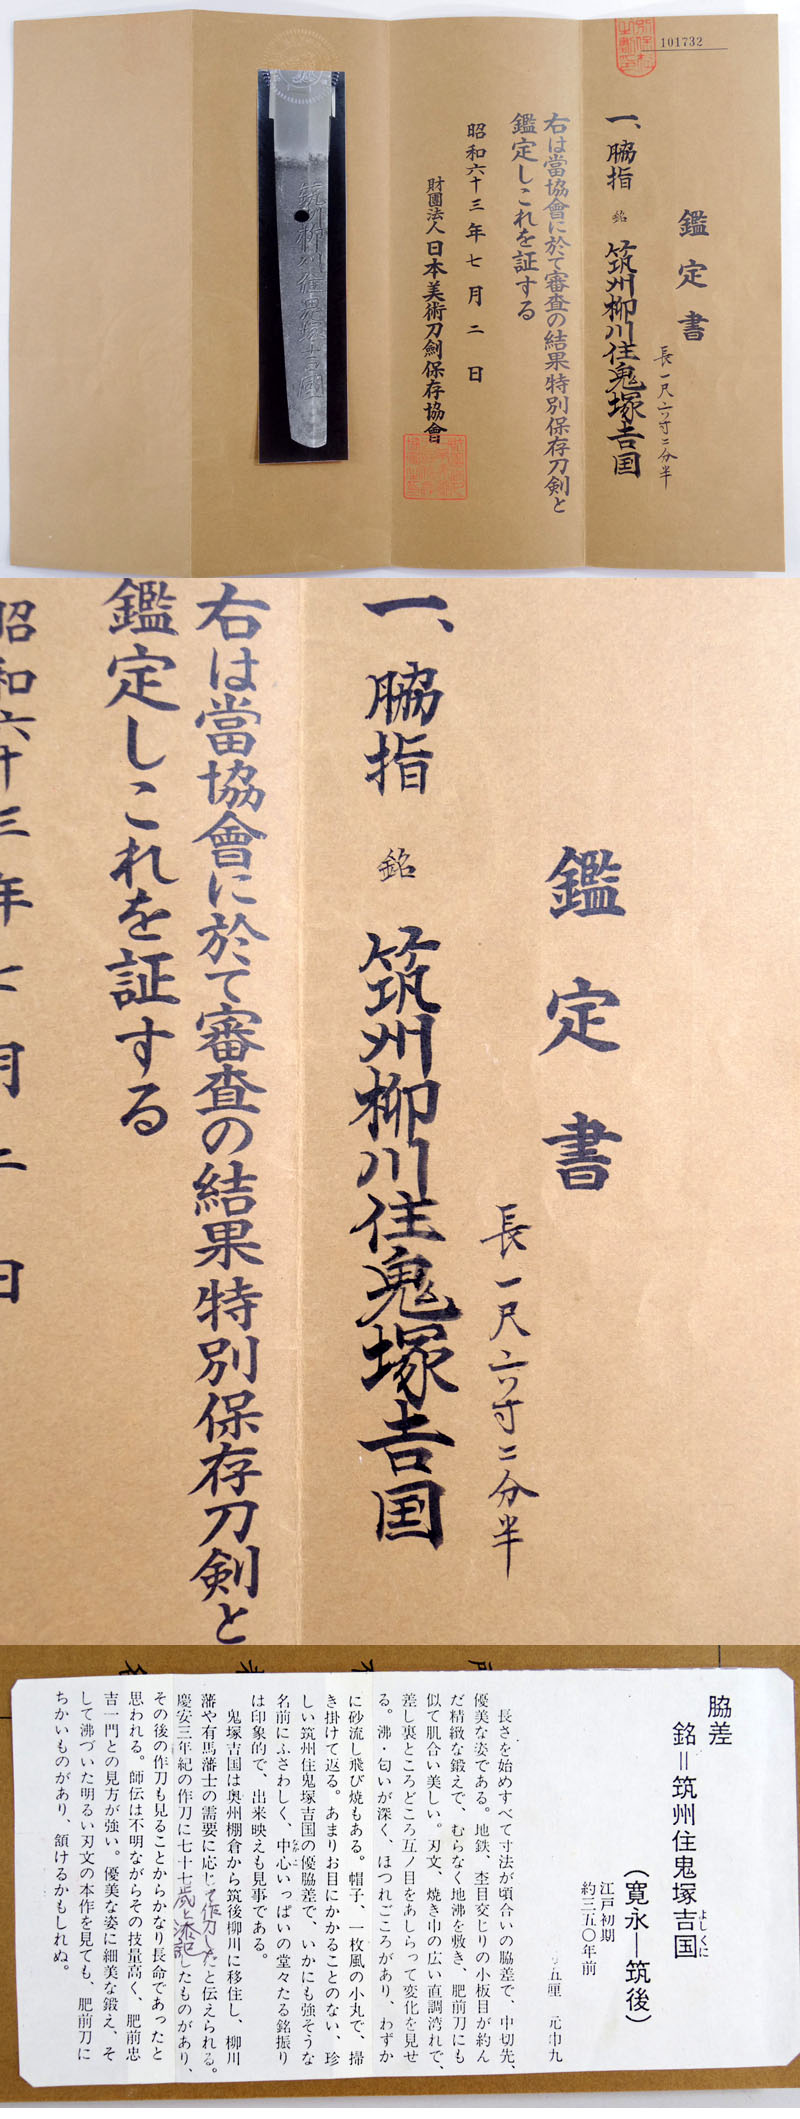 101732
鑑定書
長一尺六寸二分半
一、脇指 銘 筑州柳川住鬼塚吉国
右は當協會に於て審査の結果特別保存刀剣と
鑑定しこれを証する
昭和六十三年七月二日
財團法人日本美術刀劍保存協會
鑑定書
長一尺六寸二分半
一、脇指 銘 筑州柳川住鬼塚吉国
右は當協會に於て審査の結果特別保存刀剣と
鑑定しこれを証する
昭和六十三年七月二日
脇差
銘＝筑州住鬼塚吉国
よしくに
(寛永―筑後)
江戸初期
約三五〇年前
五厘 元巾九
長さを始めすべて寸法が頃合いの脇差で、中切先、
優美な姿である。地鉄、杢目交じりの小板目が約ん
だ精緻な鍛えで、むらなく地沸を敷き、肥前刀にも
似て肌合い美しい。刃文、焼き巾の広い直調湾れで、
差し裏ところどころ互ノ目をあしらって変化を見せ
る。沸・匂いが深く、ほつれごころがあり、わずか
に砂流し飛び焼もある。帽子、一枚風の小丸で、掃
き掛けて返る。あまりお目にかかることのない、珍
しい筑州住鬼塚吉国の優脇差で、いかにも強そうな
名前にふさわしく、中心いっぱいの堂々たる銘振り
なかご
は印象的で、出来映えも見事である。
鬼塚吉国は奥州棚倉から筑後柳川に移住し、柳川
藩や有馬藩士の需要に応じて作刀したと伝えられる。
慶安三年紀の作刀に七十七歳と添記したものがあり、
その後の作刀も見ることからかなり長命であったと
思われる。師伝は不明ながらその技量高く、肥前忠
吉一門との見方が強い。優美な姿に細美な鍛え、そ
して沸づいた明るい刃文の本作を見ても、肥前刀に
ちかいものがあり、頷けるかもしれぬ。